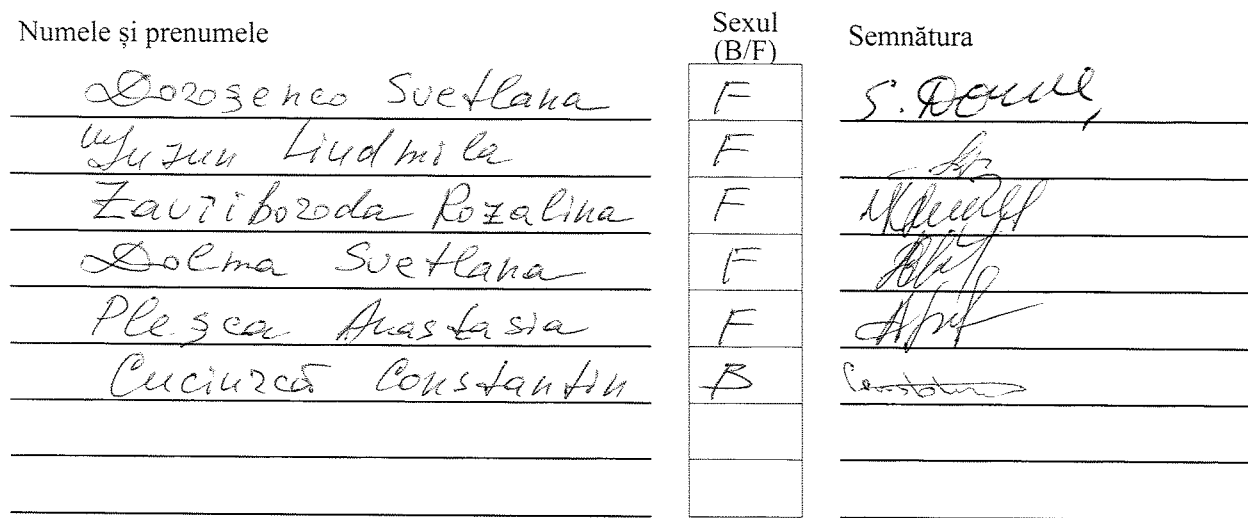 Numele și prenumele Sexul (B/F) Semnătura
Doroșenco Svetlana F
Liudmila F
Zavriboroda Rozalina F
Dolma Svetlana F
Pleșca Anastasia F
Cuciurcă Constantin B